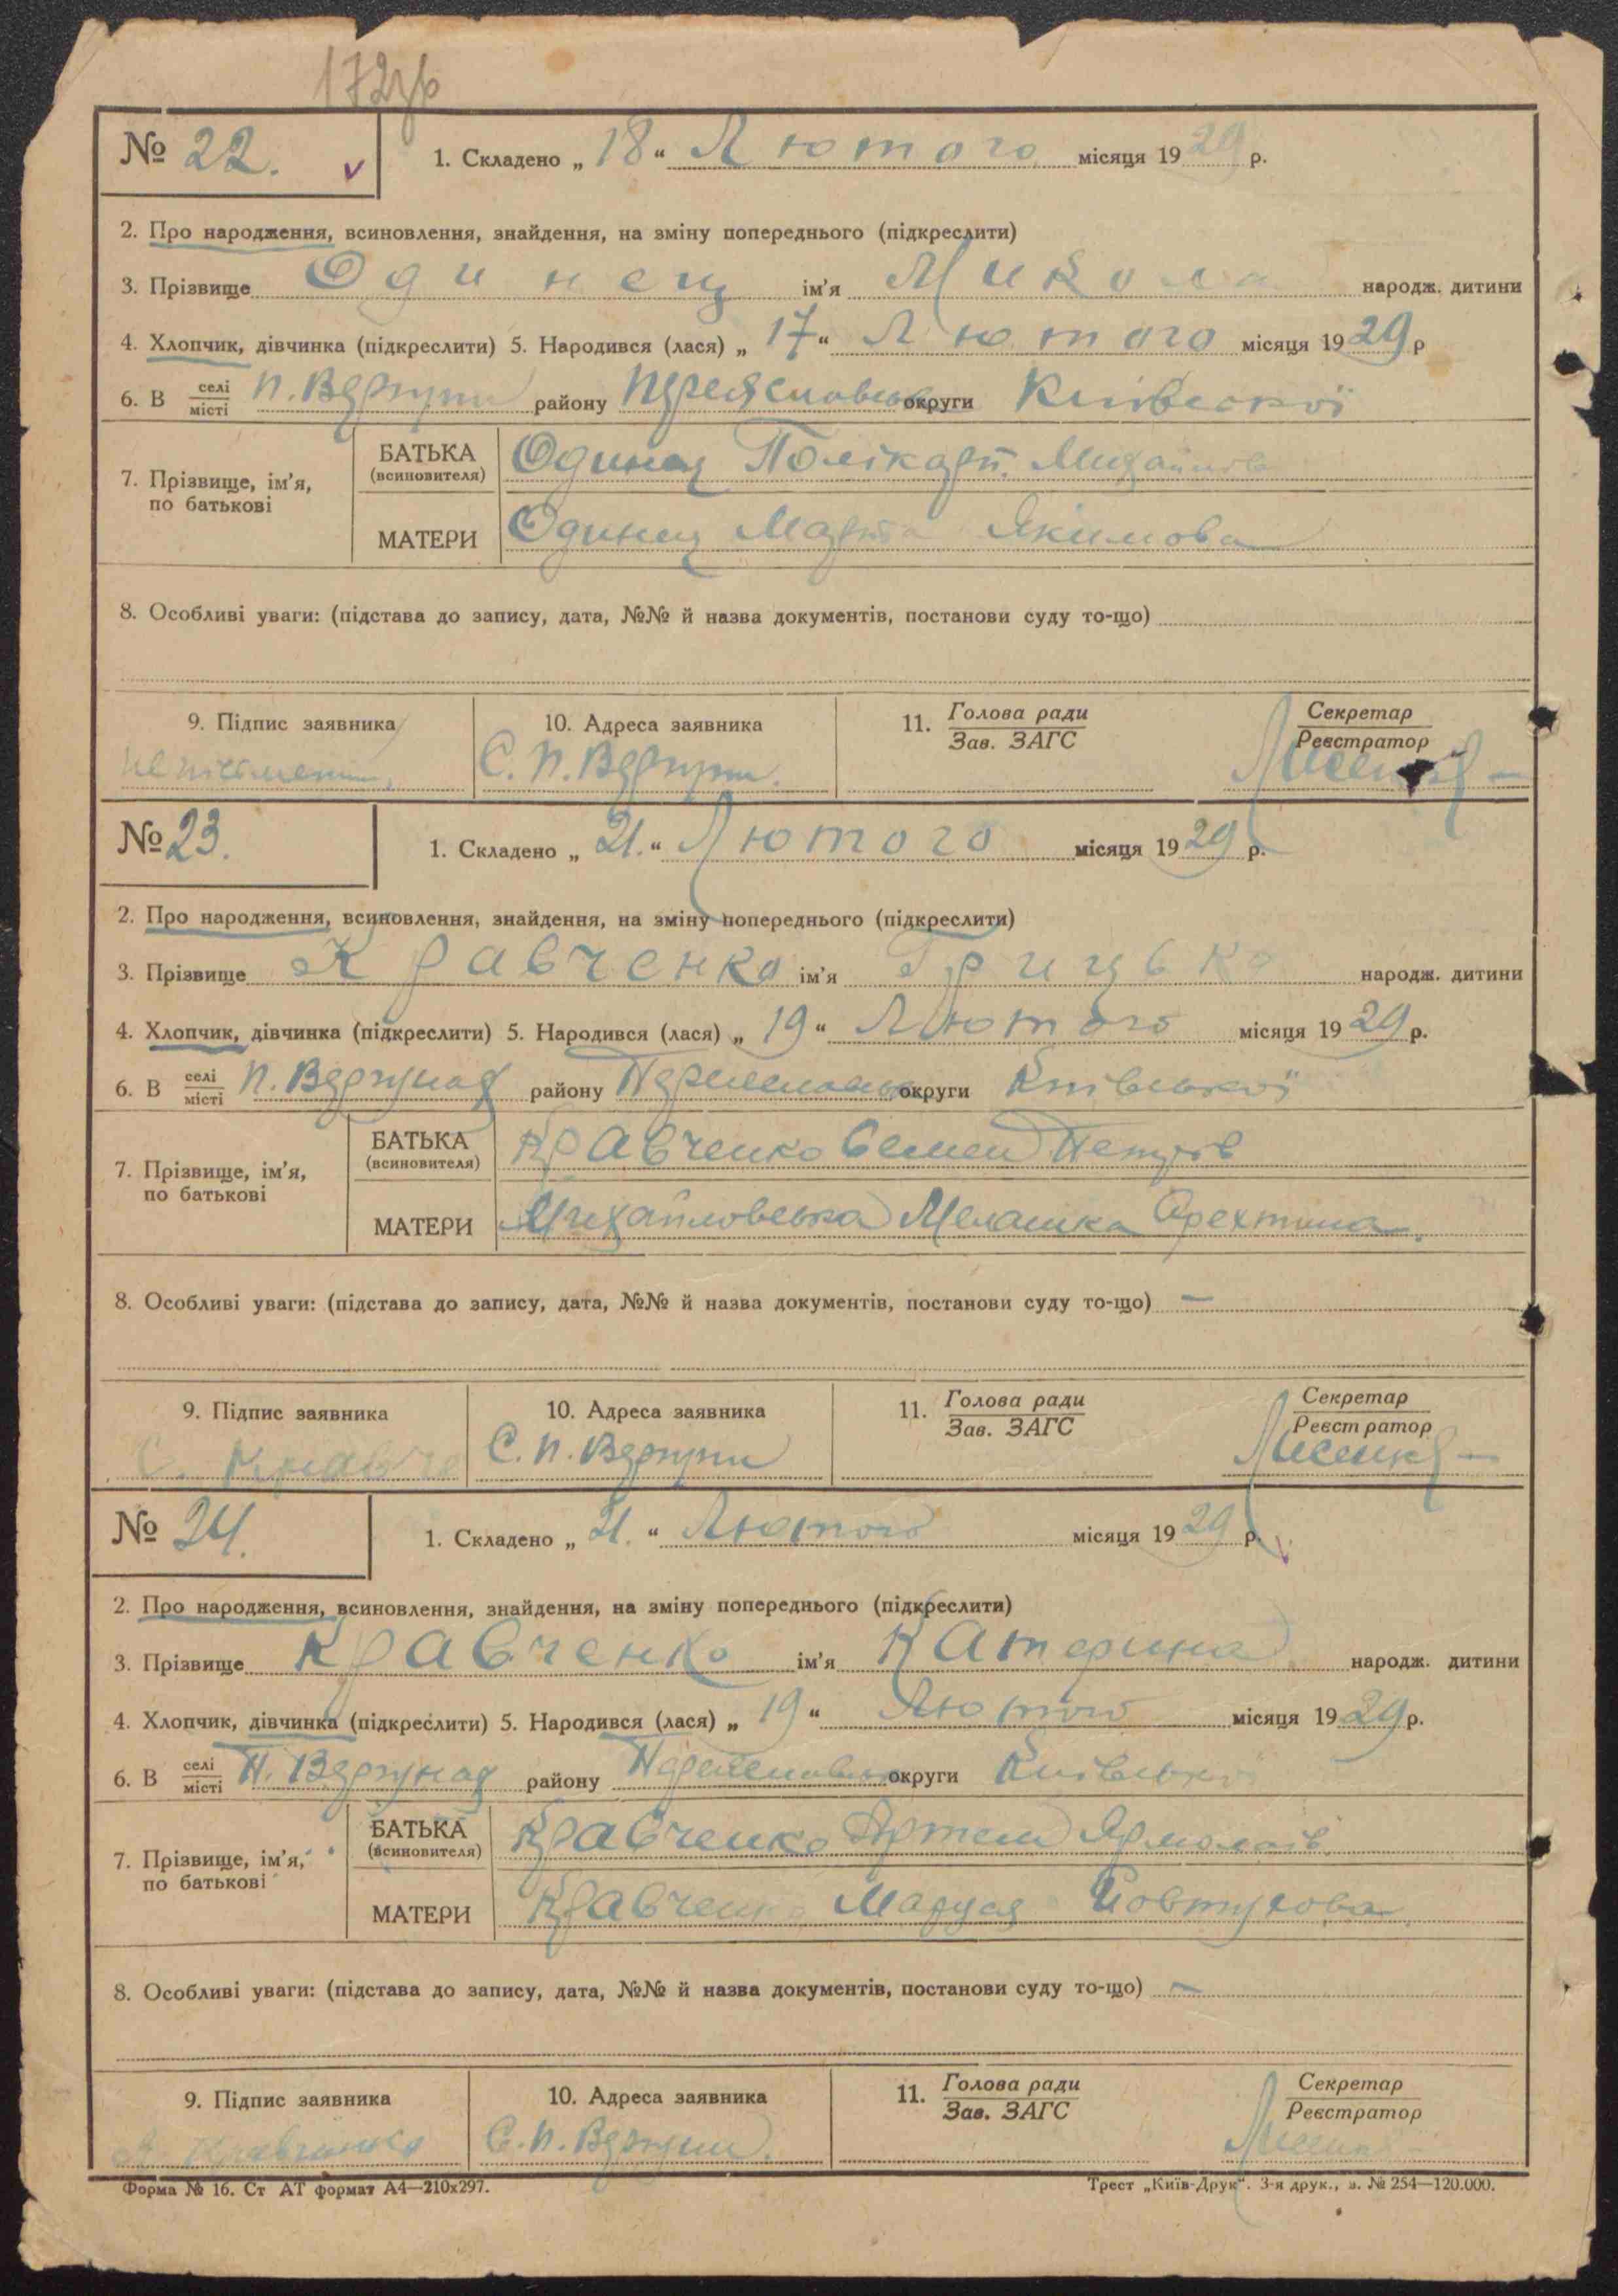 172зв
№ 22. v 1. Складено „ 18 “ Лютого місяця 1929 р.
2. Про народження, всиновлення, знайдення, на зміну попереднього (підкреслити)
3. Прізвище Одинец ім’я Микола народж. дитини
4. Хлопчик, дівчинка (підкреслити) 5. Народився (лася) „ 17 “ Лютого місяця 1929 р
6. В селі/місті П. Вергуни району Переяславськ округи Київської
7. Прізвище, ім’я, по батькові
БАТЬКА (всиновителя) Одинец Полікарп Михайлів
МАТЕРИ Одинец Марта Якимова
8. Особливі уваги: (підстава до запису, дата, №№ й назва документів, постанови суду то-що)
9. Підпис заявника 10. Адреса заявника 11. Голова ради/Зав. ЗАГС Секретар/Реєстратор
С. П. Вергуни.
№ 23. 1. Складено „ 21. “ Лютого місяця 1929 р.
2. Про народження, всиновлення, знайдення, на зміну попереднього (підкреслити)
3. Прізвище Кравченко ім’я Грицько народж. дитини
4. Хлопчик, дівчинка (підкреслити) 5. Народився (лася) „ 19 “ Лютого місяця 1929 р.
6. В селі/місті П. Вергунах району округи Київської
7. Прізвище, ім’я, по батькові
БАТЬКА (всиновителя) Кравченко Семен Петрів
МАТЕРИ Михайловська Мелашка
8. Особливі уваги: (підстава до запису, дата, №№ й назва документів, постанови суду то-що) —
9. Підпис заявника 10. Адреса заявника 11. Голова ради/Зав. ЗАГС Секретар/Реєстратор
С. П. Вергуни
№ 24. 1. Складено „ 21. “ Лютого місяця 1929 р. v
2. Про народження, всиновлення, знайдення, на зміну попереднього (підкреслити)
3. Прізвище Кравченко ім’я Катерина народж. дитини
4. Хлопчик, дівчинка (підкреслити) 5. Народився (лася) „ 19 “ Лютого місяця 1929 р.
6. В селі/місті П. Вергунах району округи Київської
7. Прізвище, ім’я, по батькові
БАТЬКА (всиновителя) Кравченко Артем Ярмолаів
МАТЕРИ Кравченко Маруся Йовтухова
8. Особливі уваги: (підстава до запису, дата, №№ й назва документів, постанови суду то-що) —
9. Підпис заявника 10. Адреса заявника 11. Голова ради/Зав. ЗАГС Секретар/Реєстратор
А. Кравченко С. П. Вергуни.
Форма № 16. Ст АТ формат А4—210х297. Трест „Київ-Друк“. 3-я друк., з. № 254—120.000.